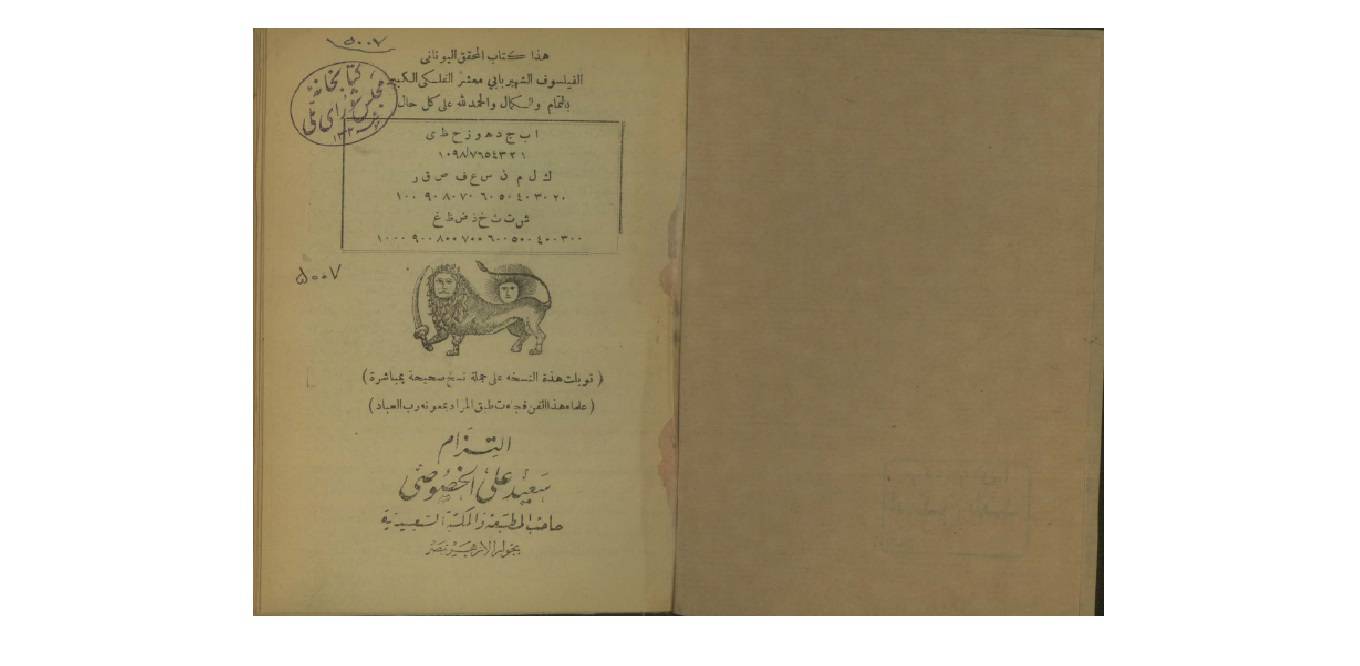 ٥٠٠٧
هذا كتاب المحقق اليونانى
الفيلسوف الشهير بابي معشر الفلكى الكبير
بالتمام والكمال والحمد لله على كل حال
كتابخانه
مجلس شوراى ملى
ا ب ج د ه و ز ح ط ى
١ ٢ ٣ ٤ ٥ ٦ ٧ ٨ ٩ ١٠
ك ل م ن س ع ف ص ق ر
٢٠ ٣٠ ٤٠ ٥٠ ٦٠ ٧٠ ٨٠ ٩٠ ١٠٠
ش ت ث خ ذ ض ظ غ
٣٠٠ ٤٠٠ ٥٠٠ ٦٠٠ ٧٠٠ ٨٠٠ ٩٠٠ ١٠٠٠
٥٠٠٧
( قوبلت هذة النسخه على جملة نسخ صحيحة بمباشرة )
( علماء هذا الفن فجاءت طبق المراد بمعونه رب العباد )
التزام
سعيد على الخصوصى
صاحب المطبعة والمكتبة السعيدية
بجوار الازهر بمصر